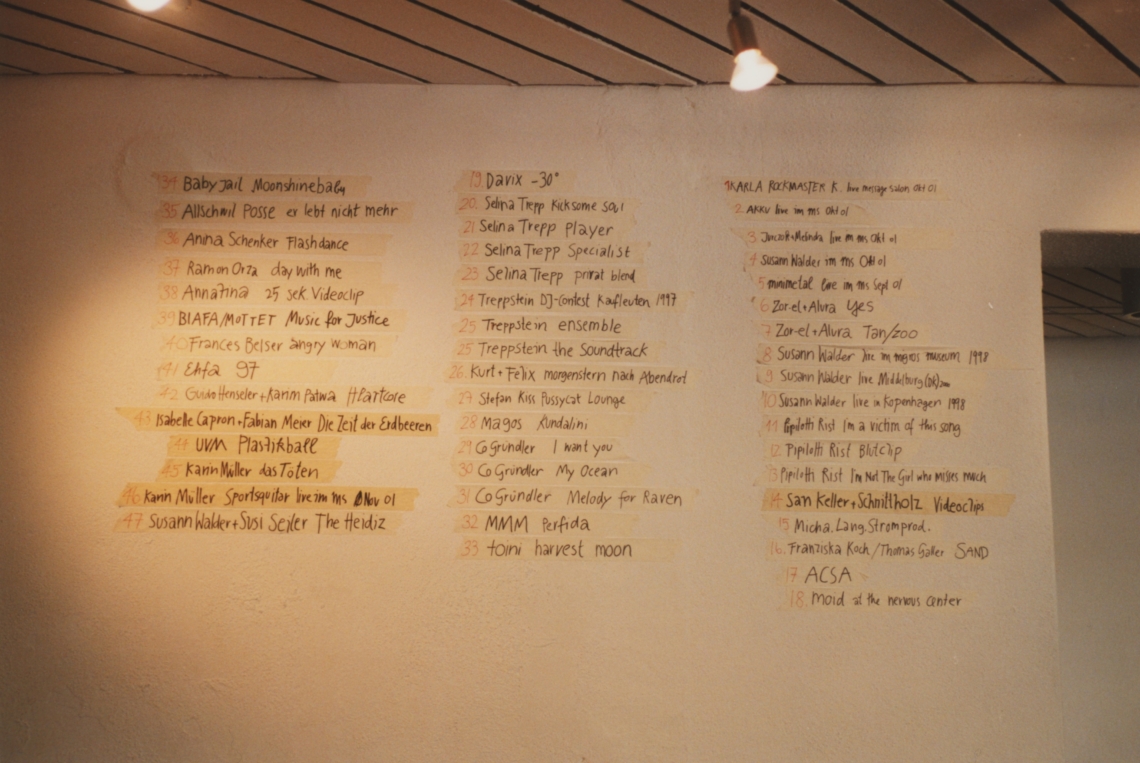 34 Baby Jail Moonshinebaby
35 Allschwil Posse er lebt nicht mehr
36 Anina Schenker Flashdance
37 Ramon Orza day with me
38 Annatina 25 sek. Videoclip
39 BIAFA/MOTTET Music for Justice
40 Frances Belser angry woman
41 Ehfa 97
42 Guido Henseler + Karim Patwa Heartcore
43 Isabelle Capron + Fabian Meier Die Zeit der Erdbeeren
44 UVM Plastikball
45 Karin Müller das Toten
46 Karin Müller Sportsguitar live im ms Nov 01
47 Susann Walder + Susi Seiler The Heidiz
19. Davix -30°
20. Selina Trepp Kicksome Soul
21 Selina Trepp Player
22 Selina Trepp Specialist
23 Selina Trepp privat blend
24 Treppstein DJ-Contest Kaufleuten 1997
25 Treppstein ensemble
25 Treppstein the Soundtrack
26. Kurt + Felix morgenstern nach Abendrot
27 Stefan Kiss Pussycat Lounge
28 Magos Kundalini
29 Co Gründler I want you
30 Co Gründler My Ocean
31 Co Gründler Melody for Raven
32 MMM Perfida
33 toini harvest moon
1 KARLA ROCKMASTER K. live message salon Okt 01
2 AKKU live im ms Okt 01
3 + Melinda live im ms Okt 01
4 Susann Walder im ms Okt 01
5 minimetal live im ms Sept 01
6 Zor-el + Alura Yes
7 Zor-el + Alura Tan/zoo
8 Susann Walder live im migros museum 1998
9 Susann Walder live Middelburg
10 Susann Walder live in Kopenhagen 1998
11 Pipilotti Rist I'm a victim of this song
12 Pipilotti Rist Blutclip
13 Pipilotti Rist I'm Not The Girl who misses much
14 San Keller + Schnittholz Videoclips
15 Micha. Lang. Stromprod.
16. Franziska Koch/Thomas Galler SAND
17 ACSA
18. Moid at the nervous center